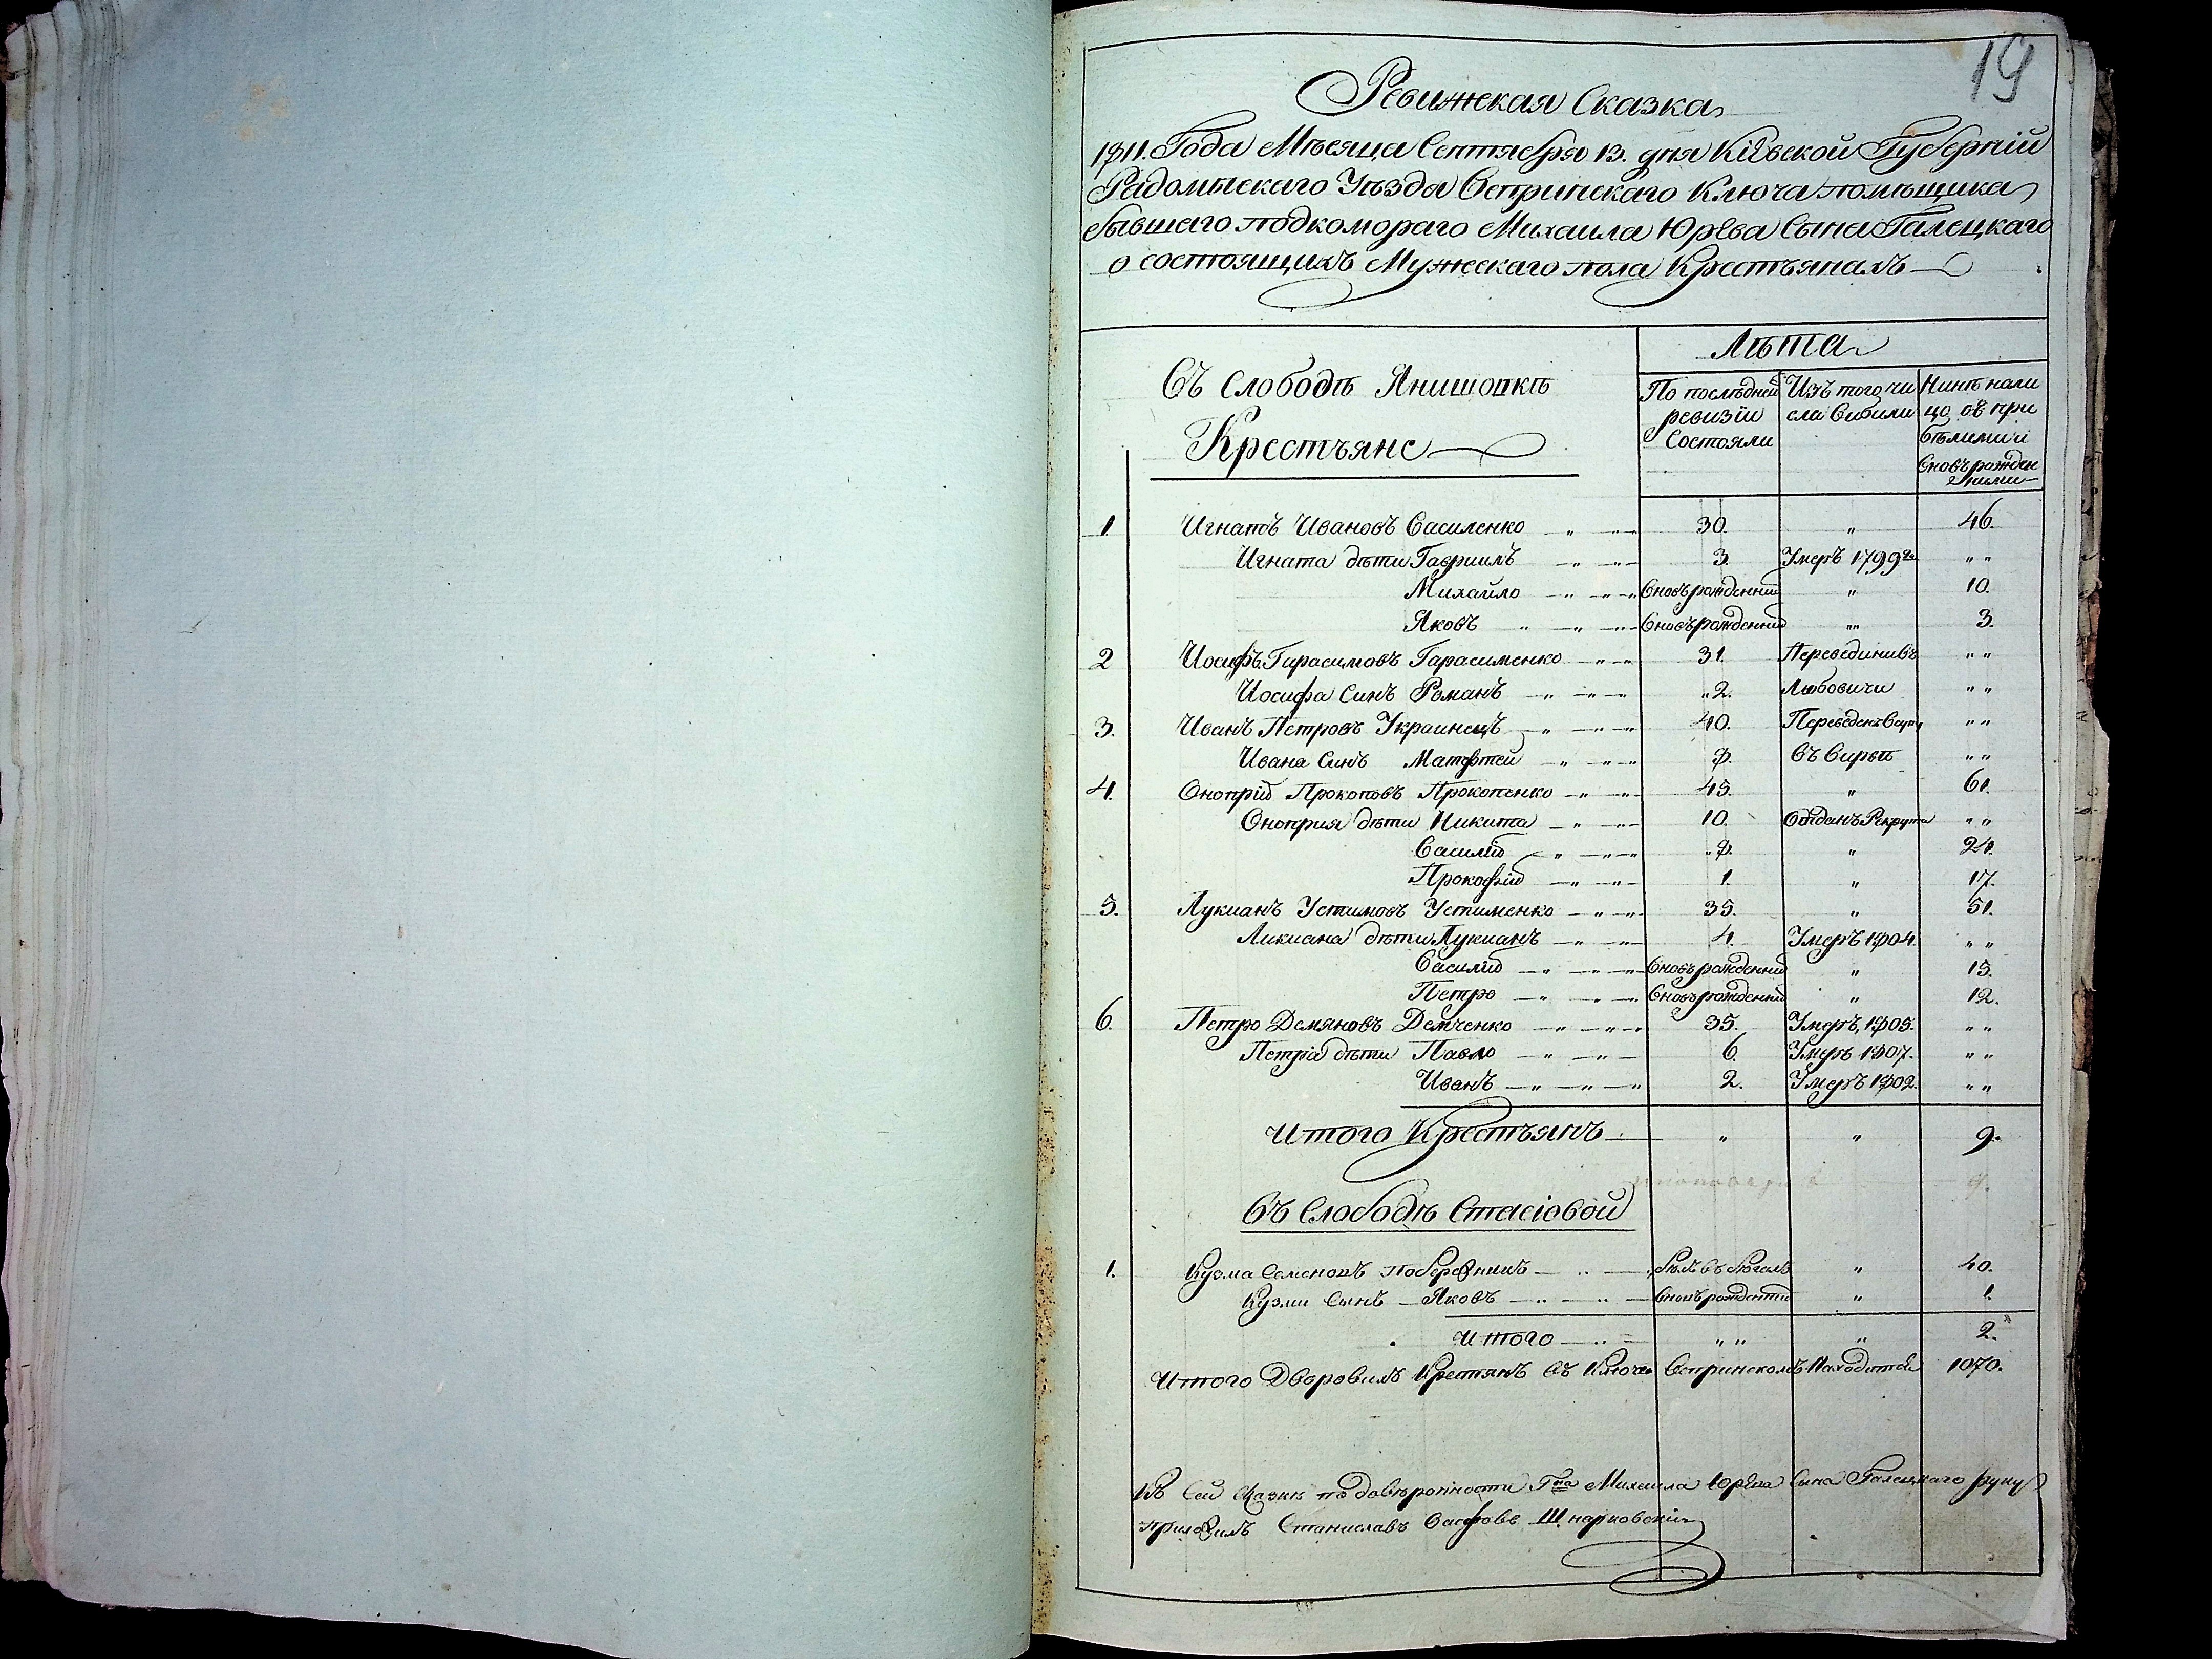 19
Ревижская Сказка
1811. Года Мѣсяца Сентября 13. дня Кіевской Губерніи
Радомыскаго Уѣзда Вепринскаго Ключа помѣщика
бывшаго подкомораго Михаила Юрева Сына Галецкаго
о состоящихъ Мужескаго пола Крестьянахъ
Лѣта
Въ Слободѣ Янишовкѣ
Крестьяне
По послѣдней ревизіи Состояли
Изъ того числа Вибили
Нинѣ налицо
Сновъ рожденними
1. Игнатъ Ивановъ Василенко 30. " 46.
Игната дѣти Гавриилъ 3. Умеръ 1799го " "
Михайло Вновърожденний " 10.
Яковъ Вновърожденний " " 3.
2 Иосифъ Гарасимовъ Гарасименко 31. Переведини Въ " "
Иосифа Синъ Романъ " 2. Любовичи " "
3. Иванъ Петровъ Украинецъ 40. Переведенъ " "
Ивана Синъ Матфтей 8. Въ Вирвѣ " "
4. Оноприй Прокоповъ Прокопенко 45. " 61.
Оноприя дѣти Никита 10. Отданъ Рекрути " "
Василій " 8. " 24.
Прокофій 1. " 17.
5. Лукианъ Устимовъ Устименко 35. " 51.
Ликиана дѣти Лукианъ 4. Умеръ 1804. " "
Василій Вновърожденний " 15.
Петро Вновърожденний " 12.
6. Петро Демяновъ Демченко 35. Умеръ 1805. " "
Петра дѣти Павло 6. Умеръ 1807. " "
Иванъ 2. Умеръ 1802. " "
Итого Крестьянъ " " 9.
Въ Слободѣ Стасіовой
1. Кузма Семеновъ Побережникъ Билъ въ бѣгахъ " 40.
Кузми Сынъ Яковъ Вновърожденний " 1.
Итого " " " 2.
Итого Дворовихъ Крестянъ Въ Ключе Вепринскомъ Находится 1070.
Къ Сей Сказки по довѣренности Гна Михаила Юрева Сина Галецкаго руку
приложилъ Станиславъ Шнарковскій